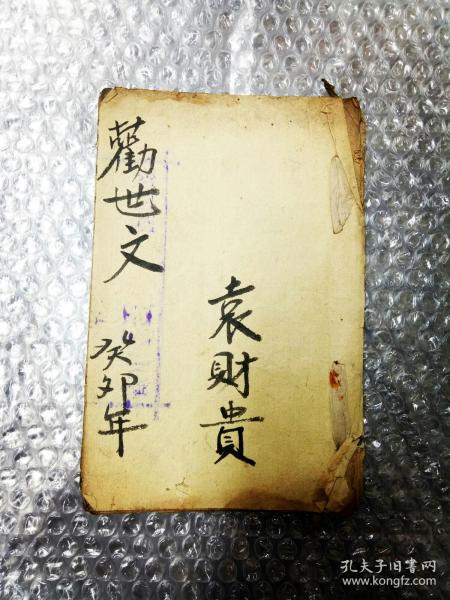 勸世文 癸卯年
袁財貴
孔夫子旧書网
www.kongfz.com